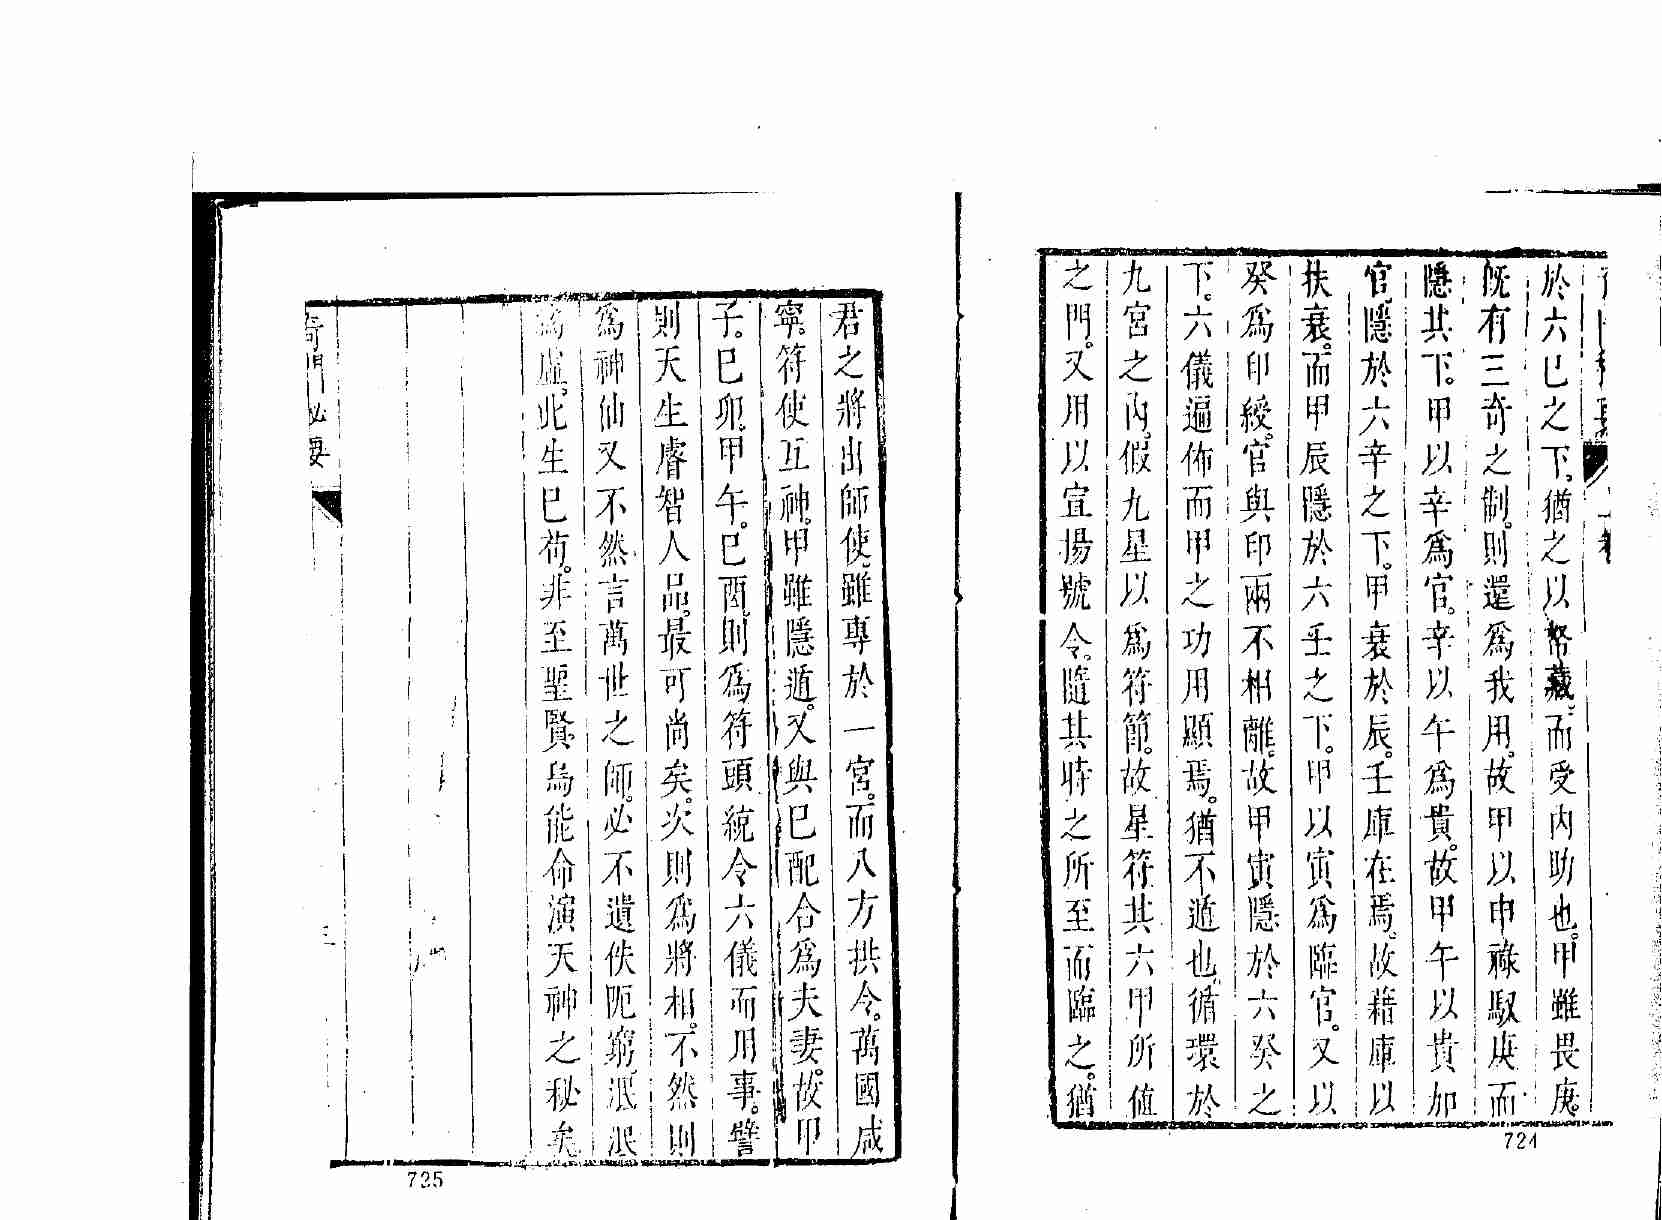 於六巳之下。猶之以帑藏。而受內助也。甲雖畏庚。
旣有三奇之制。則還爲我用。故甲以申祿馭庚而
隱其下。甲以辛爲官。辛以午爲貴。故甲午以貴加
官。隱於六辛之下。甲衰於辰。壬庫在焉。故藉庫以
扶衰。而甲辰隱於六壬之下。甲以寅爲臨官。又以
癸爲印綬。官與印兩不相離。故甲寅隱於六癸之
下。六儀遍佈而甲之功用顯焉。猶不遁也。循環於
九宮之內。假九星以爲符節。故星符其六甲所值
之門。又用以宣揚號令。隨其時之所至而臨之。猶
724
君之將出師使。雖專於一宮。而八方拱令。萬國咸
寧。符使互神。甲雖隱遁。又與巳配合爲夫妻。故甲
子。巳卯。甲午。巳酉。則爲符頭統令六儀而用事。譬
則天生睿智人品。最可尚矣。次則爲將相。不然則
爲神仙又不然言萬世之師。必不遺佚阨窮。泯泯
爲虛。此生巳苟。非至聖賢烏能命演天神之秘矣
奇門必要
三
725